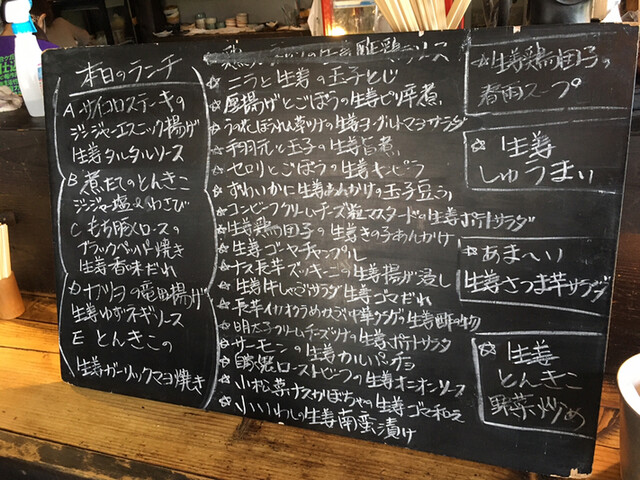 本日のランチ
A サイコロステーキの
ジンジャーエスニック揚げ
生姜タルタルソース
B 煮たてのとんきこ
ジンジャー塩&わさび
C もち豚ロースの
ブラックペッパー焼き
生姜香味だれ
D カツヲの竜田揚げ
生姜ゆずネギソース
E とんきこの
生姜ガーリックマヨ焼き
☆ ニラと生姜の玉子とじ
☆ 厚揚げとごぼうの生姜ピリ辛煮
☆ うの花ほうれん草ツナの生姜ヨーグルトマヨサラダ
☆ 手羽元と玉子の生姜旨煮
☆ セロリとごぼうの生姜キンピラ
☆ ずわいかに生姜あんかけの玉子豆ふ
☆ コンビーフクリームチーズ粒マスタードの生姜ポテトサラダ
☆ 生姜鶏肉団子の生姜きの子あんかけ
☆ 生姜ゴーヤチャンプル
☆ ナス長芋ズッキーニの生姜揚げ浸し
☆ 生姜牛しゃぶサラダ生姜ゴマだれ
☆ 長芋イカオクラめかぶ中華クラゲの生姜酢の物
☆ 明太子クリームチーズツナの生姜ポテトサラダ
☆ サーモンの生姜カルパッチョ
☆ 自家製ローストビーフの生姜オニオンソース
☆ 小松菜ナスかぼちゃの生姜ゴマ和え
☆ 小いわしの生姜南蛮漬け
☆ 生姜鶏肉団子の
春雨スープ
☆ 生姜
しゅうまい
☆ あま〜い
生姜さつま芋サラダ
☆ 生姜
とんきこ
野菜炒め